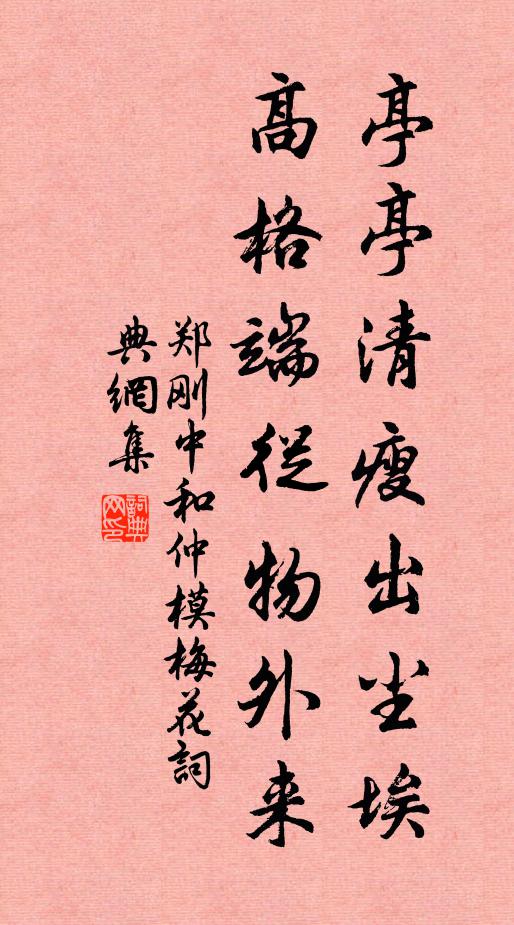 亭亭清瘦出尘埃
高格端從物外来
郑刚中和仲模梅花詞
典網集
詞典网印